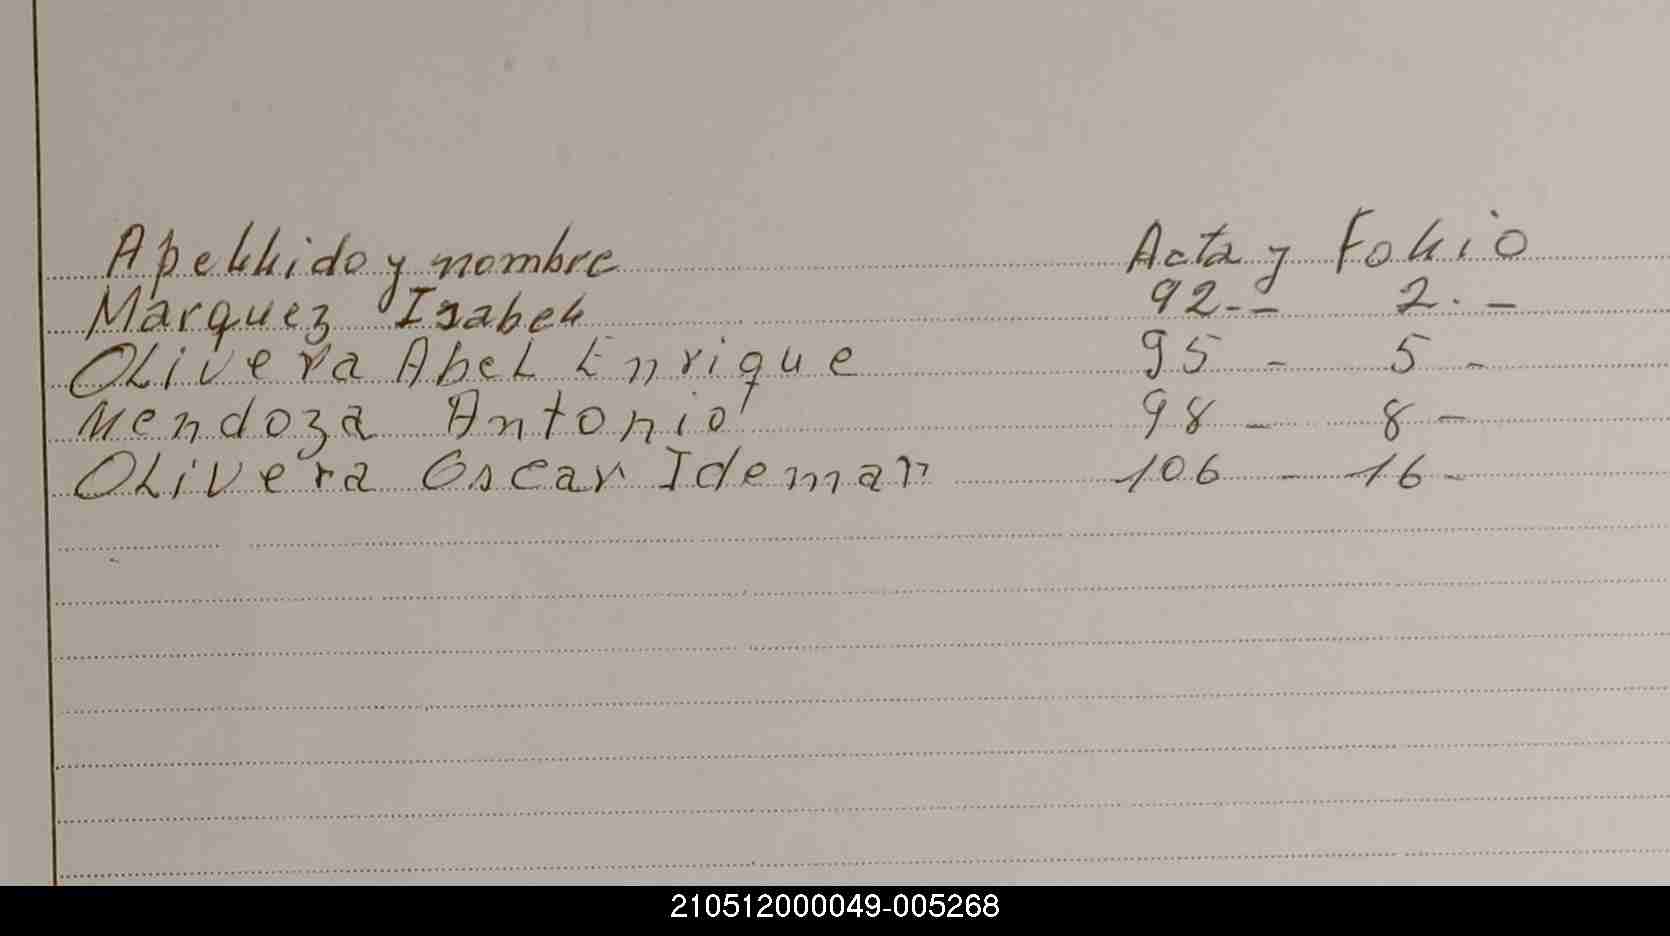 Apellido y nombre Acta y Folio
Marquez Isabel 92-- 2.-
Olivera Abel Enrique 95 - 5 -
Mendoza Antonio 98 - 8 -
Olivera Oscar Idemar 106 - 16 -
210512000049-005268